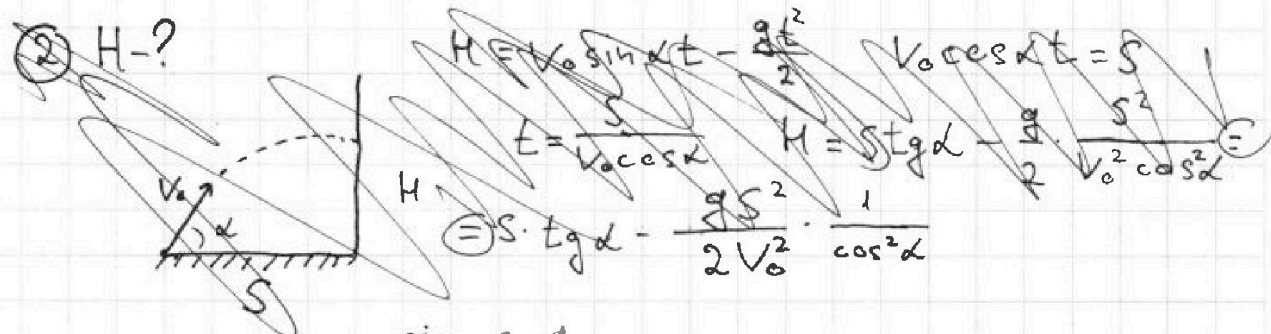 ② H-?
H = V₀ sin α t - gt²/2   V₀ cos α t = S
t = S/(V₀ cos α)   H = S tg α - g/2 · S²/(V₀² cos² α) ⊜
⊜ S · tg α - gS²/(2V₀²) · 1/cos² α
V₀
α
H
S